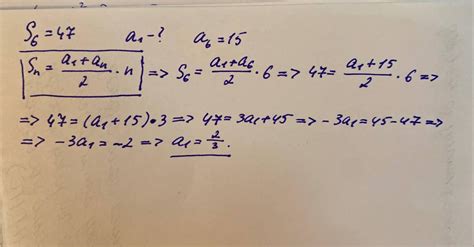 S₆=47 a₁-? a₆=15
Sₙ=(a₁+aₙ)/2·n => S₆=(a₁+a₆)/2·6 => 47=(a₁+15)/2·6 =>
=> 47=(a₁+15)·3 => 47=3a₁+45 => -3a₁=45-47 =>
=> -3a₁=-2 => a₁=2/3.